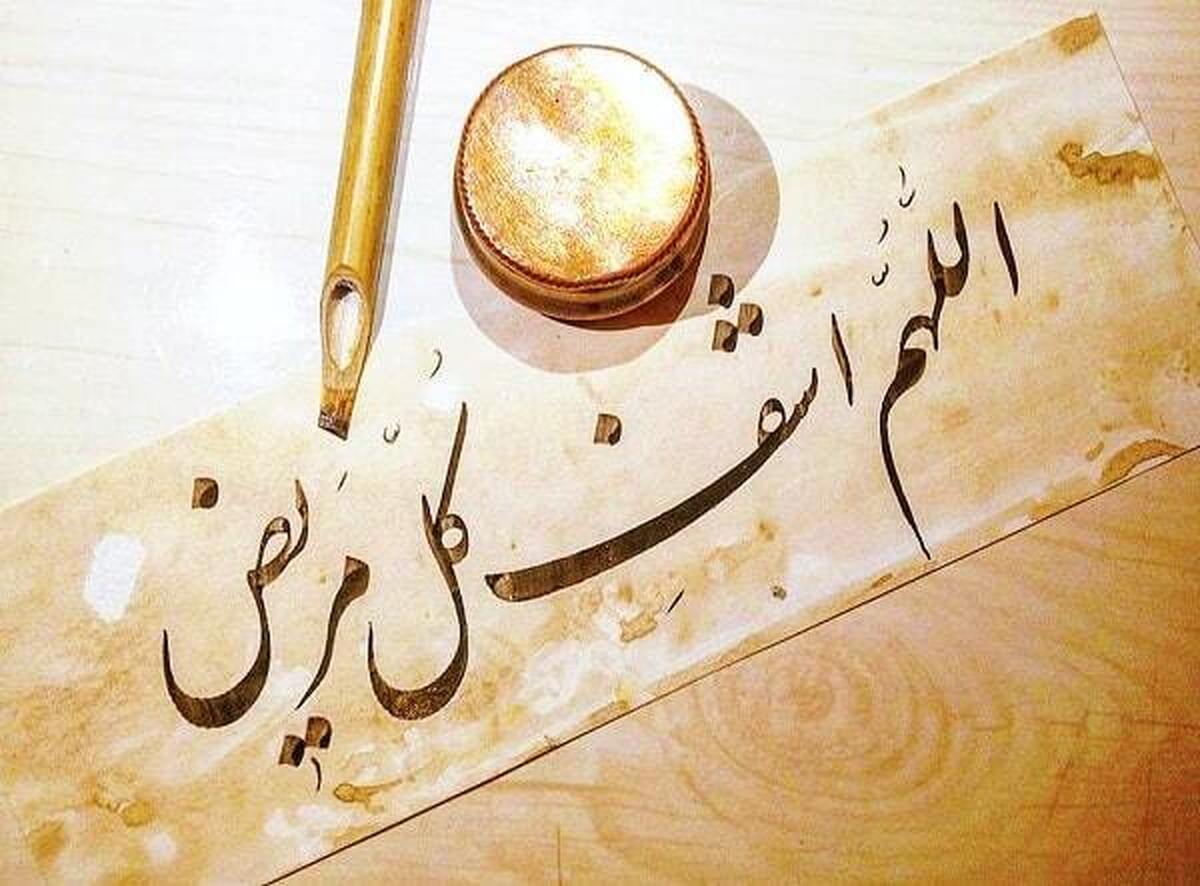 اللّٰهم اشفِ كُلَّ مَريضٍ